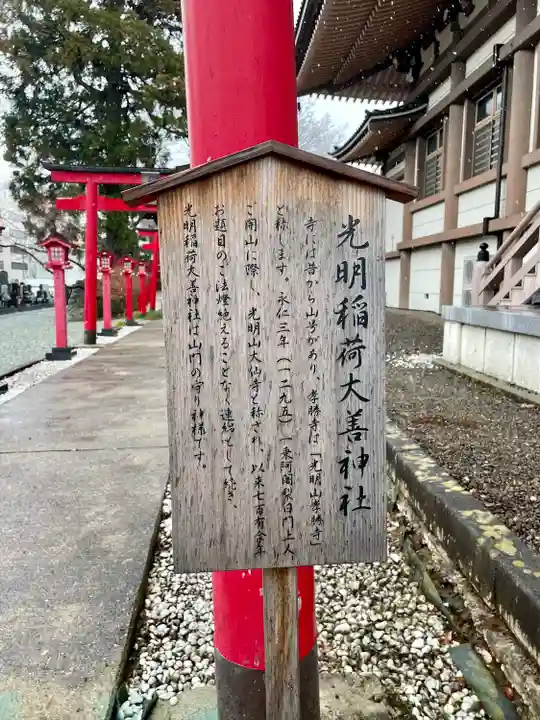 光明稲荷大善神社
寺には昔から山号があり、孝勝寺は「光明山孝勝寺」
と称します。永仁三年（一二九五）一乗阿闍梨日門上人、
ご開山に際し、光明山大仙寺と称され、以来七百有余年
お題目のご法燈絶えることなく連綿として続き、
光明稲荷大善神社は山門の守り神様です。